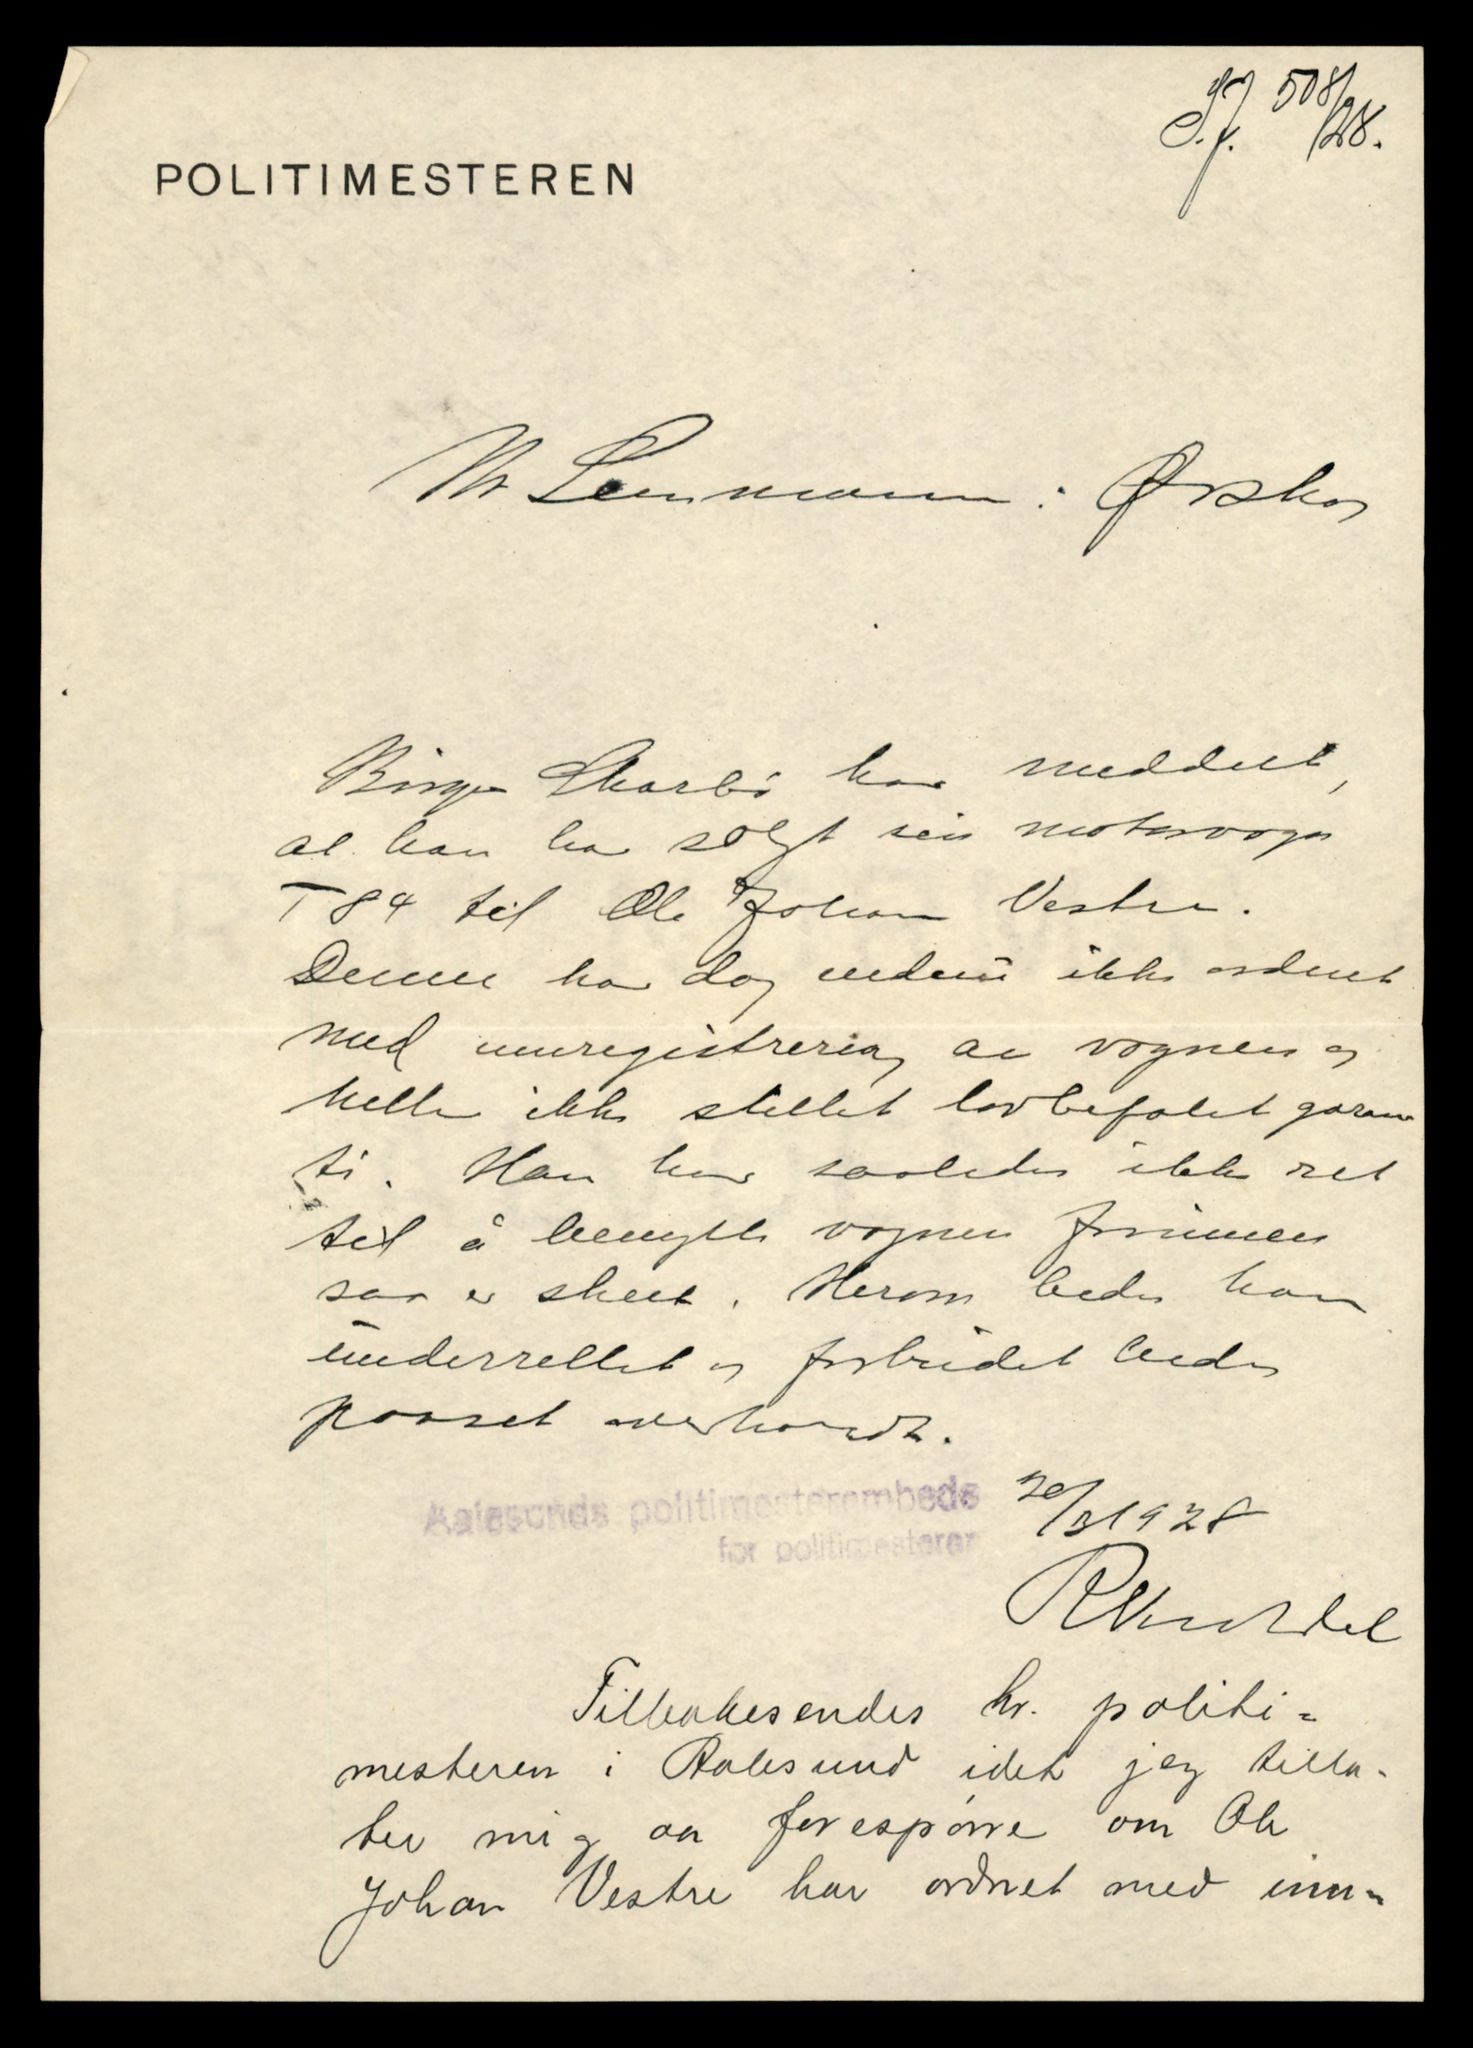 S.J. 508/28.
POLITIMESTEREN
Hr Lensmannen i Ørskog
Birger Skarbö har meddelt,
at han har solgt sin motorvogn
T 84 til Ole Johan Vestre.
Denne har dog endnu ikke ordnet
med omregistrering av vognen og
heller ikke stillet lovbefalet garan
ti. Han har saaledes ikke ret
til å benytte vognen forinnen
saa er skeet. Herom bedes han
underrettet og forbudet bedes
paaset overholdt.
Aalesunds politimesterembede
for politimesteren
20/3 1928
Tilbakesendes hr. politi=
mesteren i Aalesund idet jeg tilla-
ter mig aa forespørre om Ole
Johan Vestre har ordnet med inn-